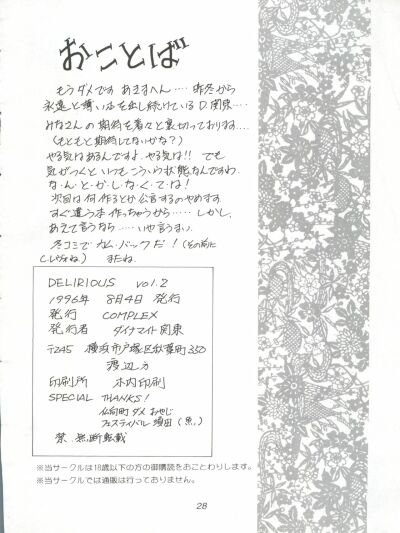 おことば
もうダメです あきまへん…… 昨冬から
永遠と薄い本を出し続けているD.関東……
みなさんの期待を着々と裏切っております……
(もともと期待してないかな?)
やる気はあるんですよ、やる気は!! でも
気がつくといつもこういう状態なんですわ、
な・ん・と・か・し・な・く・て・は!
次回は何作るとか公言するのやめます
すぐ違う本作っちゃうから…… しかし、
あえて言うなら…… いや言うまい、
冬コミでカムバックだ! (その前に
またね、
DELIRIOUS vol.2
1996年 8月4日 発行
発行 COMPLEX
発行者 ダイナマイト関東
〒245 横浜市戸塚区秋葉町350
渡辺方
印刷所 木内印刷
SPECIAL THANKS!
ダメ おやじ
フェスティバル 須田
禁 無断転載
※当サークルは18歳以下の方の御購読をおことわりします。
※当サークルでは通販は行っておりません。
28